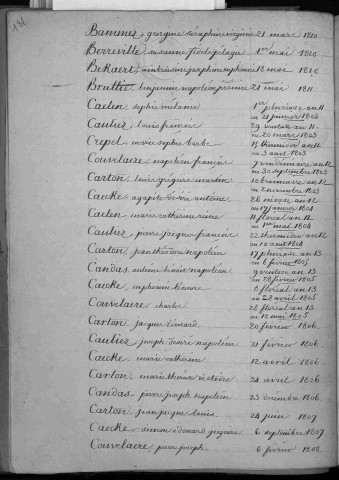 141
Bammez, gorgine séraphine virginie 21 mars 1810
Borreville, susanne pélagie 1er mai 1810
Bekaert, ambroisine joséphine euphémie 18 mai 1810
Bruttin, benjamin napoléon prince 28 mai 1811
Caelen, sophie mélanie 1er pluviose an 11
ou 21 janvier 1803
Cautiez, louis françois 29 ventose an 11
ou 20 mars 1803
Crepel, marie sophie barbe 15 thermidor an 11
ou 3 août 1803
Couvelaere, napoléon françois 7 vendemiaire an 12
ou 30 septembre 1803
Carton, louis grégoire martin 10 brumaire an 12
ou 2 novembre 1803
Caecke, agapite désiré antoine 26 nivose an 12
ou 17 janvier 1804
Caelen, marie catherine reine 11 floréal an 12
ou 1er mai 1804
Cautiez, pierre jacques françois 22 thermidor an 12
ou 10 août 1804
Carton, jean théodore napoléon 17 pluviose an 13
ou 6 février 1805
Candas, antoine benoit napoléon 9 ventose an 13
ou 28 février 1805
Caecke, euphémie 8 floréal an 13
ou 28 avril 1805
Couvelaere, charles 28 floréal an 13
ou 18 mai 1805
Carton, jacques léonard 20 février 1806
Cautiez, joseph désiré napoléon 21 février 1806
Caecke, marie catherine 12 avril 1806
Carton, marie thérèse victoire 24 avril 1806
Candas, pierre joseph napoléon 23 décembre 1806
Carton, jean jacques louis 24 juin 1807
Caecke, simon édouard grégoire 6 septembre 1807
Couvelaere, pierre joseph 6 février 1808